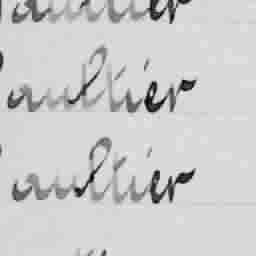 aultier
aultier
aultier